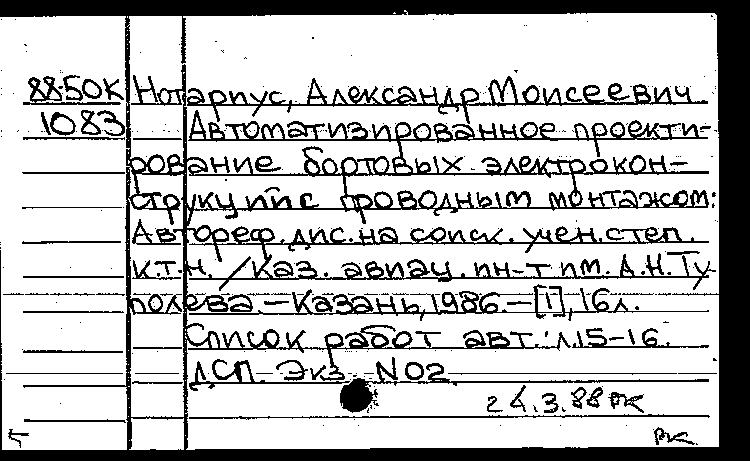 88-50К Нотариус, Александр Моисеевич.
1083 Автоматизированное проекти-
рование бортовых электрокон-
струкций с проводным монтажом:
Автореф. дис. на соиск. учен. степ.
к.т.н. / Каз. авиац. ин-т им. А.Н. Ту-
полева. – Казань, 1986. – [1], 16 л.
Список работ авт.: л. 15-16.
ДСП. Экз. N 02.
24.3.88 РК
РК